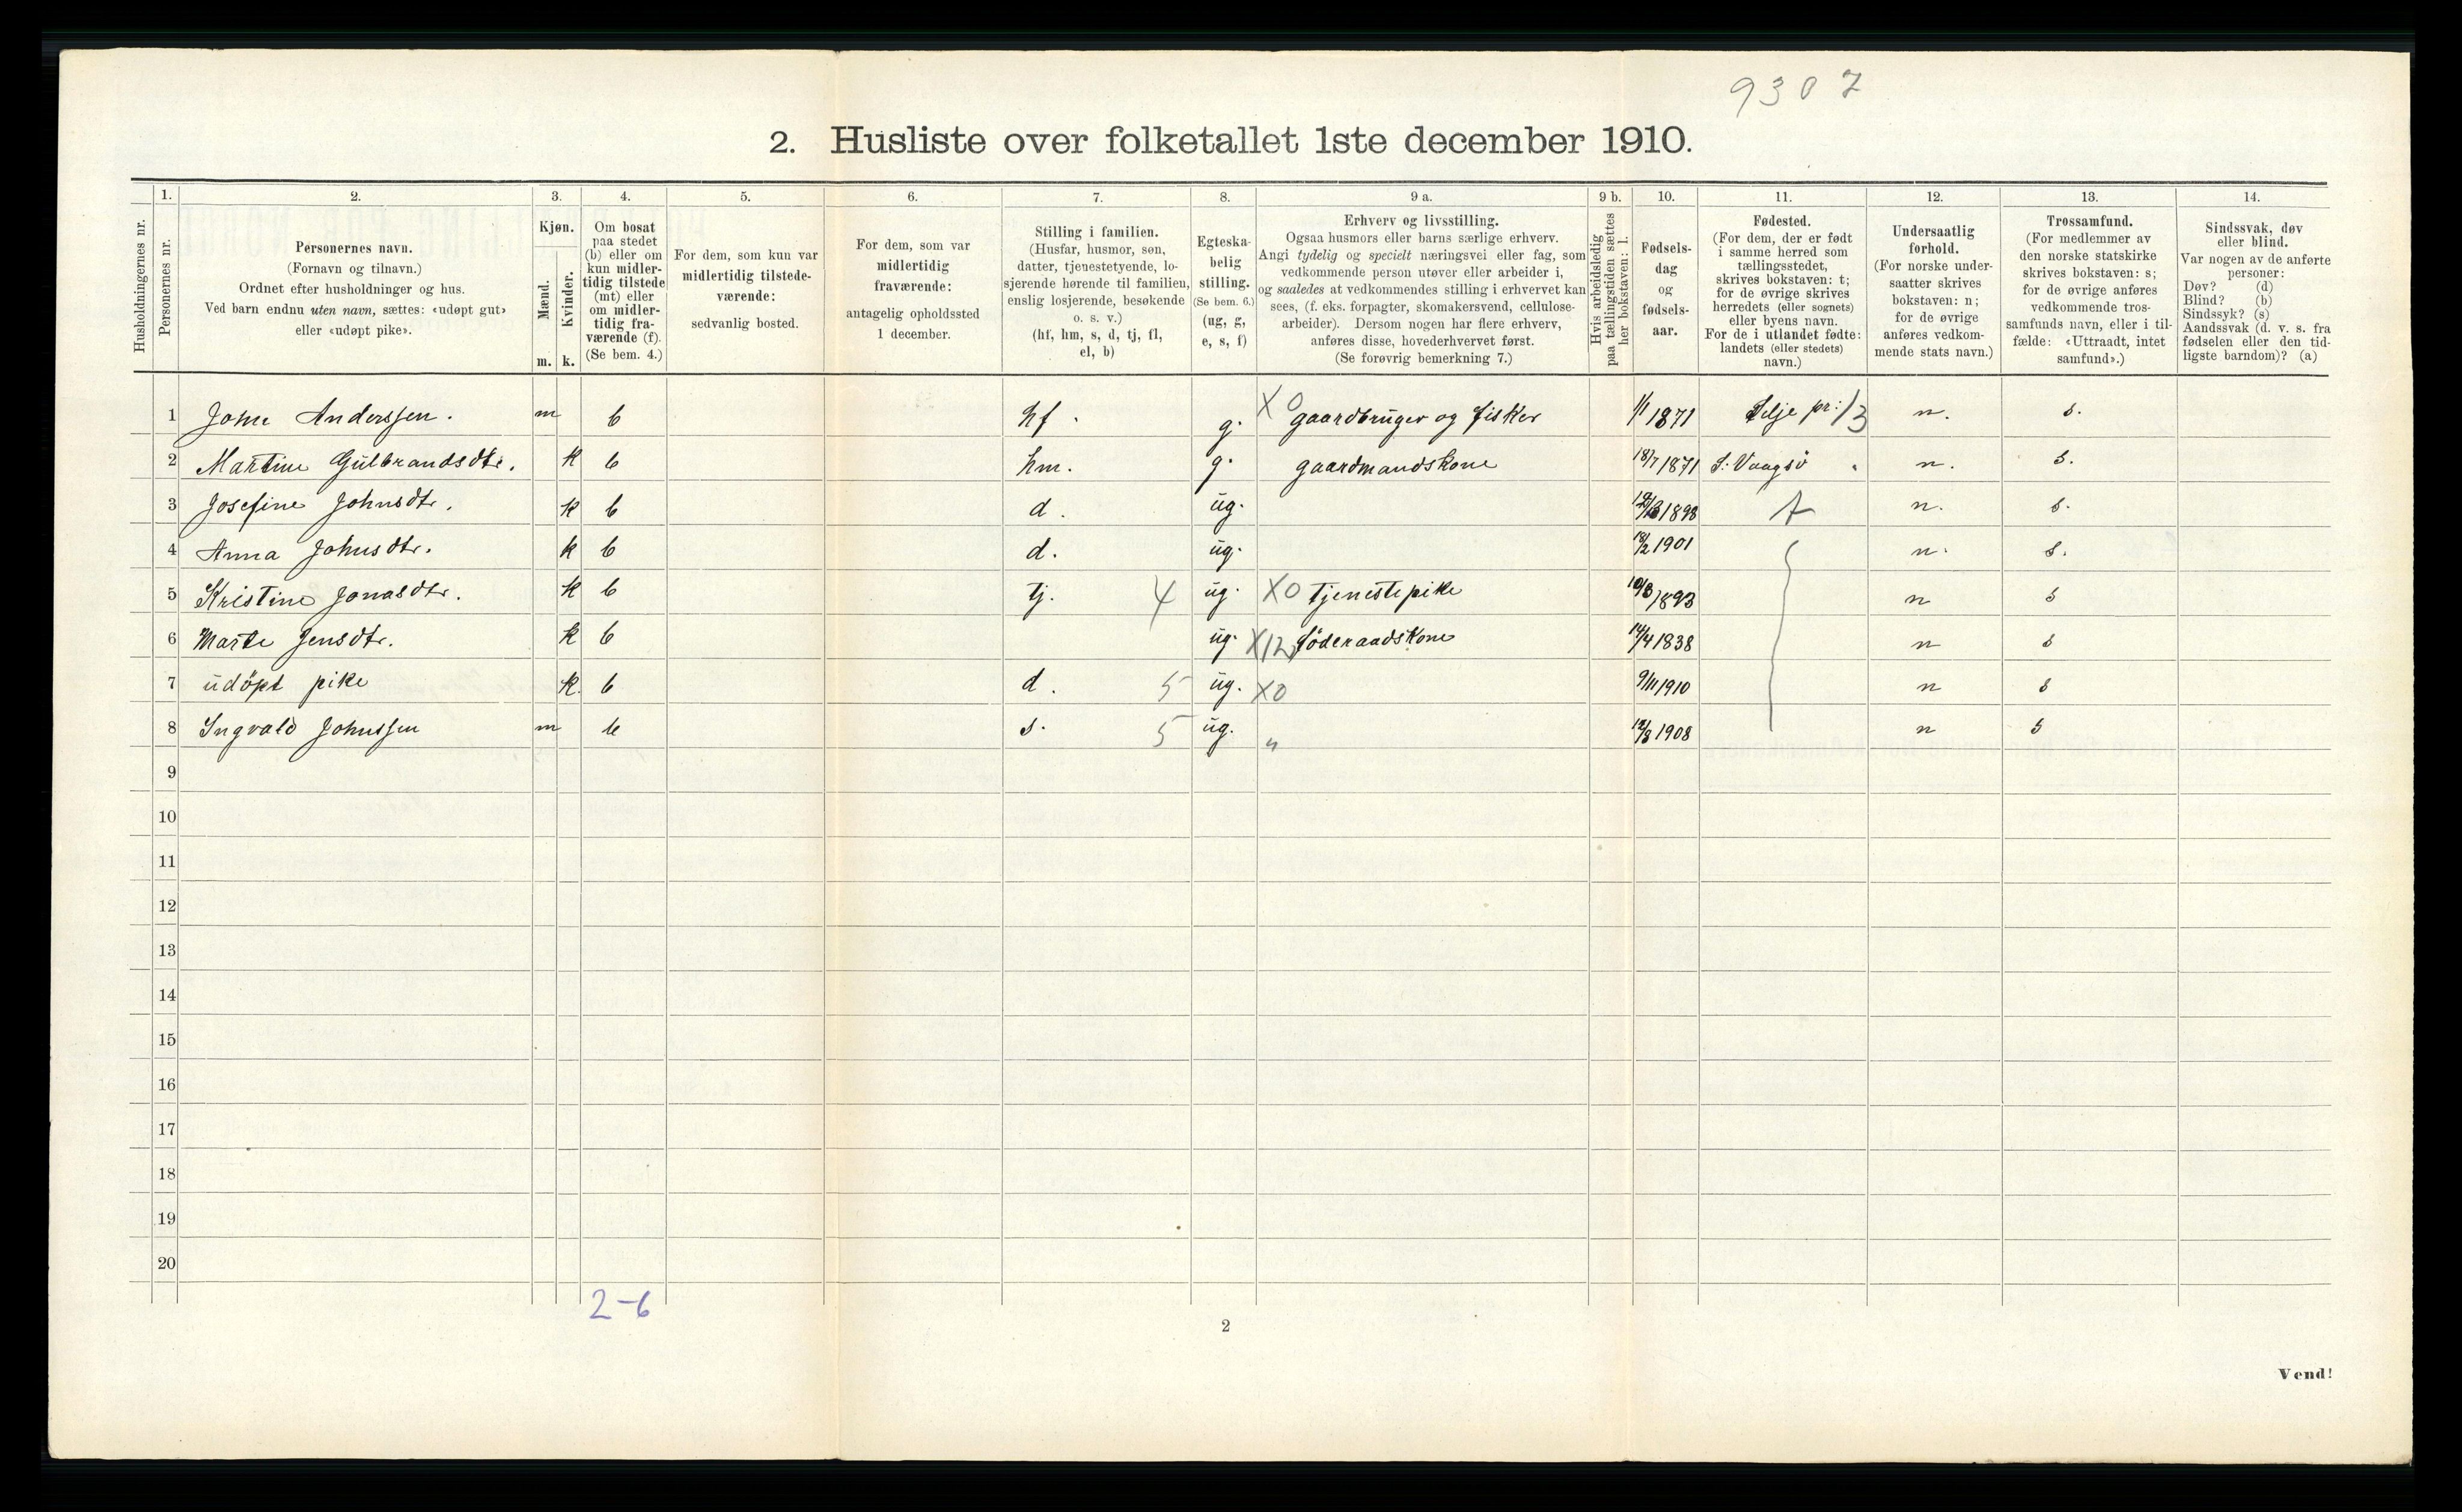 9307
2. Husliste over folketallet 1ste december 1910.
Husholdningernes nr.
1.
Personernes nr.
2.
Personernes navn.
(Fornavn og tilnavn.)
Ordnet efter husholdninger og hus.
Ved barn endnu uten navn, sættes: «udøpt gut»
eller «udøpt pike».
3.
Kjøn.
Mænd.
Kvinder.
m. k.
4.
Om bosat
paa stedet
(b) eller om
kun midler-
tidig tilstede
(mt) eller
om midler-
tidig fra-
værende (f).
(Se bem. 4.)
5.
For dem, som kun var
midlertidig tilstede-
værende:
sedvanlig bosted.
6.
For dem, som var
midlertidig
fraværende:
antagelig opholdssted
1 december.
7.
Stilling i familien.
(Husfar, husmor, søn,
datter, tjenestetyende, lo-
sjerende hørende til familien,
enslig losjerende, besøkende
o. s. v.)
(hf, hm, s, d, tj, fl,
el, b)
8.
Egteska-
belig
stilling.
(Se bem. 6.)
(ug, g,
e, s, f)
9 a.
Erhverv og livsstilling.
Ogsaa husmors eller barns særlige erhverv.
Angi tydelig og specielt næringsvei eller fag, som
vedkommende person utøver eller arbeider i,
og saaledes at vedkommendes stilling i erhvervet kan
sees, (f. eks. forpagter, skomakersvend, cellulose-
arbeider). Dersom nogen har flere erhverv,
anføres disse, hovederhvervet først.
(Se forøvrig bemerkning 7.)
9 b.
Hvis arbeidsledig
paa tællingstiden sættes
her bokstaven: l.
10.
Fødsels-
dag
og
fødsels-
aar.
11.
Fødested.
(For dem, der er født
i samme herred som
tællingsstedet,
skrives bokstaven: t;
for de øvrige skrives
herredets (eller sognets)
eller byens navn.
For de i utlandet fødte:
landets (eller stedets)
navn.)
12.
Undersaatlig
forhold.
(For norske under-
saatter skrives
bokstaven: n;
for de øvrige
anføres vedkom-
mende stats navn.)
13.
Trossamfund.
(For medlemmer av
den norske statskirke
skrives bokstaven: s;
for de øvrige anføres
vedkommende tros-
samfunds navn, eller i til-
fælde: «Uttraadt, intet
samfund».)
14.
Sindssvak, døv
eller blind.
Var nogen av de anførte
personer:
Døv? (d)
Blind? (b)
Sindssyk? (s)
Aandssvak (d. v. s. fra
fødselen eller den tid-
ligste barndom)? (a)
1 John Anderssen. m b hf. g. X0 gaardbruger og fisker 1/1 1871 Selje pr: 13 n. s.
2 Martine Gülbrandsdtr. k b hm. g. gaardmandskone 18/7 1871 S. Vaagsö " n. s.
3 Josefine Johnsdtr. k b d. üg. 1898 t n. s.
4 Anna Johnsdtr. k b d. üg. 18/2 1901 n. s.
5 Kristine Jonasdtr. k b tj. 4 üg. X0 Tjenestepike 10/3 1893 n s
6 Marte Jensdtr. k b üg. X12 Föderaadskone 14/4 1838 n s
7 üdöpt pike k. b d. 5 üg. X0 9/11 1910 n s
8 Ingvald Johnssen m b s. 5 üg. " 12/3 1908 n s
9
10
11
12
13
14
15
16
17
18
19
20
2-6
2
Vend!